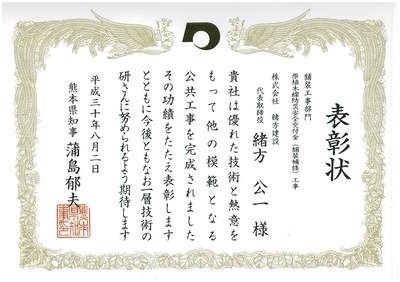 表彰状
舗装工事部門
原植木線防災安全交付金(舗装補修)工事
株式会社 緒方建設
代表取締役 緒方公一様
貴社は優れた技術と熱意を
もって他の模範となる
公共工事を完成されました
その功績をたたえ表彰します
とともに今後ともなお一層技術の
研さんに努められるよう期待します
平成三十年八月二日
熊本県知事 蒲島郁夫